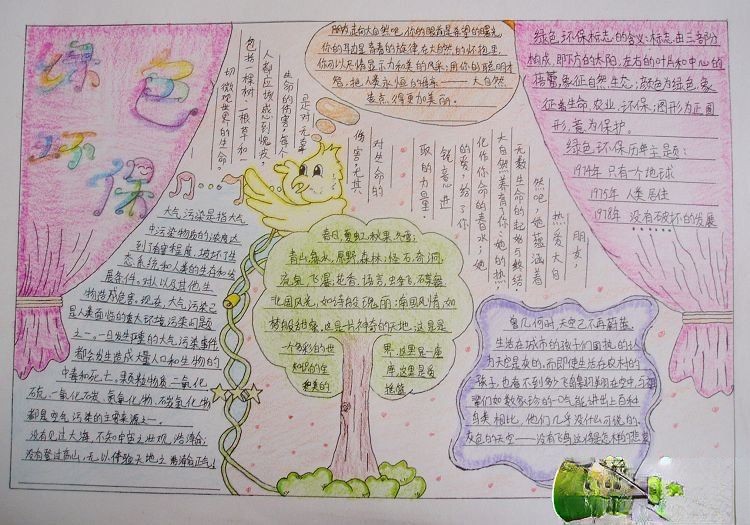 绿色
环保
朋友走向大自然吧,你的眼前是希望的曙光
你的耳边是青春的旋律在大自然的怀抱里
你可以尽情显示力和美的风采,用你的聪明才
把人类永恒的母亲——大自然
得更加美丽。
绿色环保标志的含义:标志由三部分
构成,即下方的太阳,左右的叶片和中心的
蓓蕾,象征自然生态;颜色为绿色,象
征着生命,农业、环保;图形为正圆
形,意为保护。
绿色环保历年主题:
1974年 只有一个地球
1975年 人类居住
1978年 没有破坏的发展
朋友,
热爱大自
然吧,她蕴涵着
无数生命的起始与终结,
大自然养育了你,她的热,
化作你生命的春水;她
的爱,给了你
锐意进
取的力量。
对生命的
伤害,尤其
是对无辜
生命的伤害,每个
人都应该感到愧疚,
包括一棵树、一根草和
切微观世界的生命。
大气污染是指大气
中污染物质的浓度达
到了有害程度,破坏了生
态系统和人类的生存和发
展条件,对人以及其他生
物造成危害。现在,大气污染已
是人类面临的重大环境污染问题
之一。一旦发生严重的大气污染事件
都会发生造成大量人口和生物的
中毒和死亡。颗粒物质、二氧化
硫、一氧化碳、氮氧化物、碳氢化物
都是空气污染的主要来源之一。
没有见过大海,不知宇宙之壮观、浩渺;
没有登过高山,无以体验天地之浩瀚正气!
春日,夏虹,秋果,冬雪;
青山,绿水,原野,森林;怪石,奇洞,
流泉,飞瀑,花香,语言,虫争飞
北国风光,如诗般瑰丽;南国风情,如
梦般甜蜜,这是片神奇的天地,这里是
一个多彩的世界,这里是一座
知识的宝库,这里是爱
和美的摇篮
曾几何时,天空已不再蔚蓝,
生活在城市的孩子们固执的认
为天空是灰的,而即使生活在农村的
孩子,也看不到多少飞鸟闪翔在空中,与祖
辈们如数家珍的一口气能讲出上百种
鸟类相比,他们几乎没什么可说的,
灰色的天空——没有飞鸟